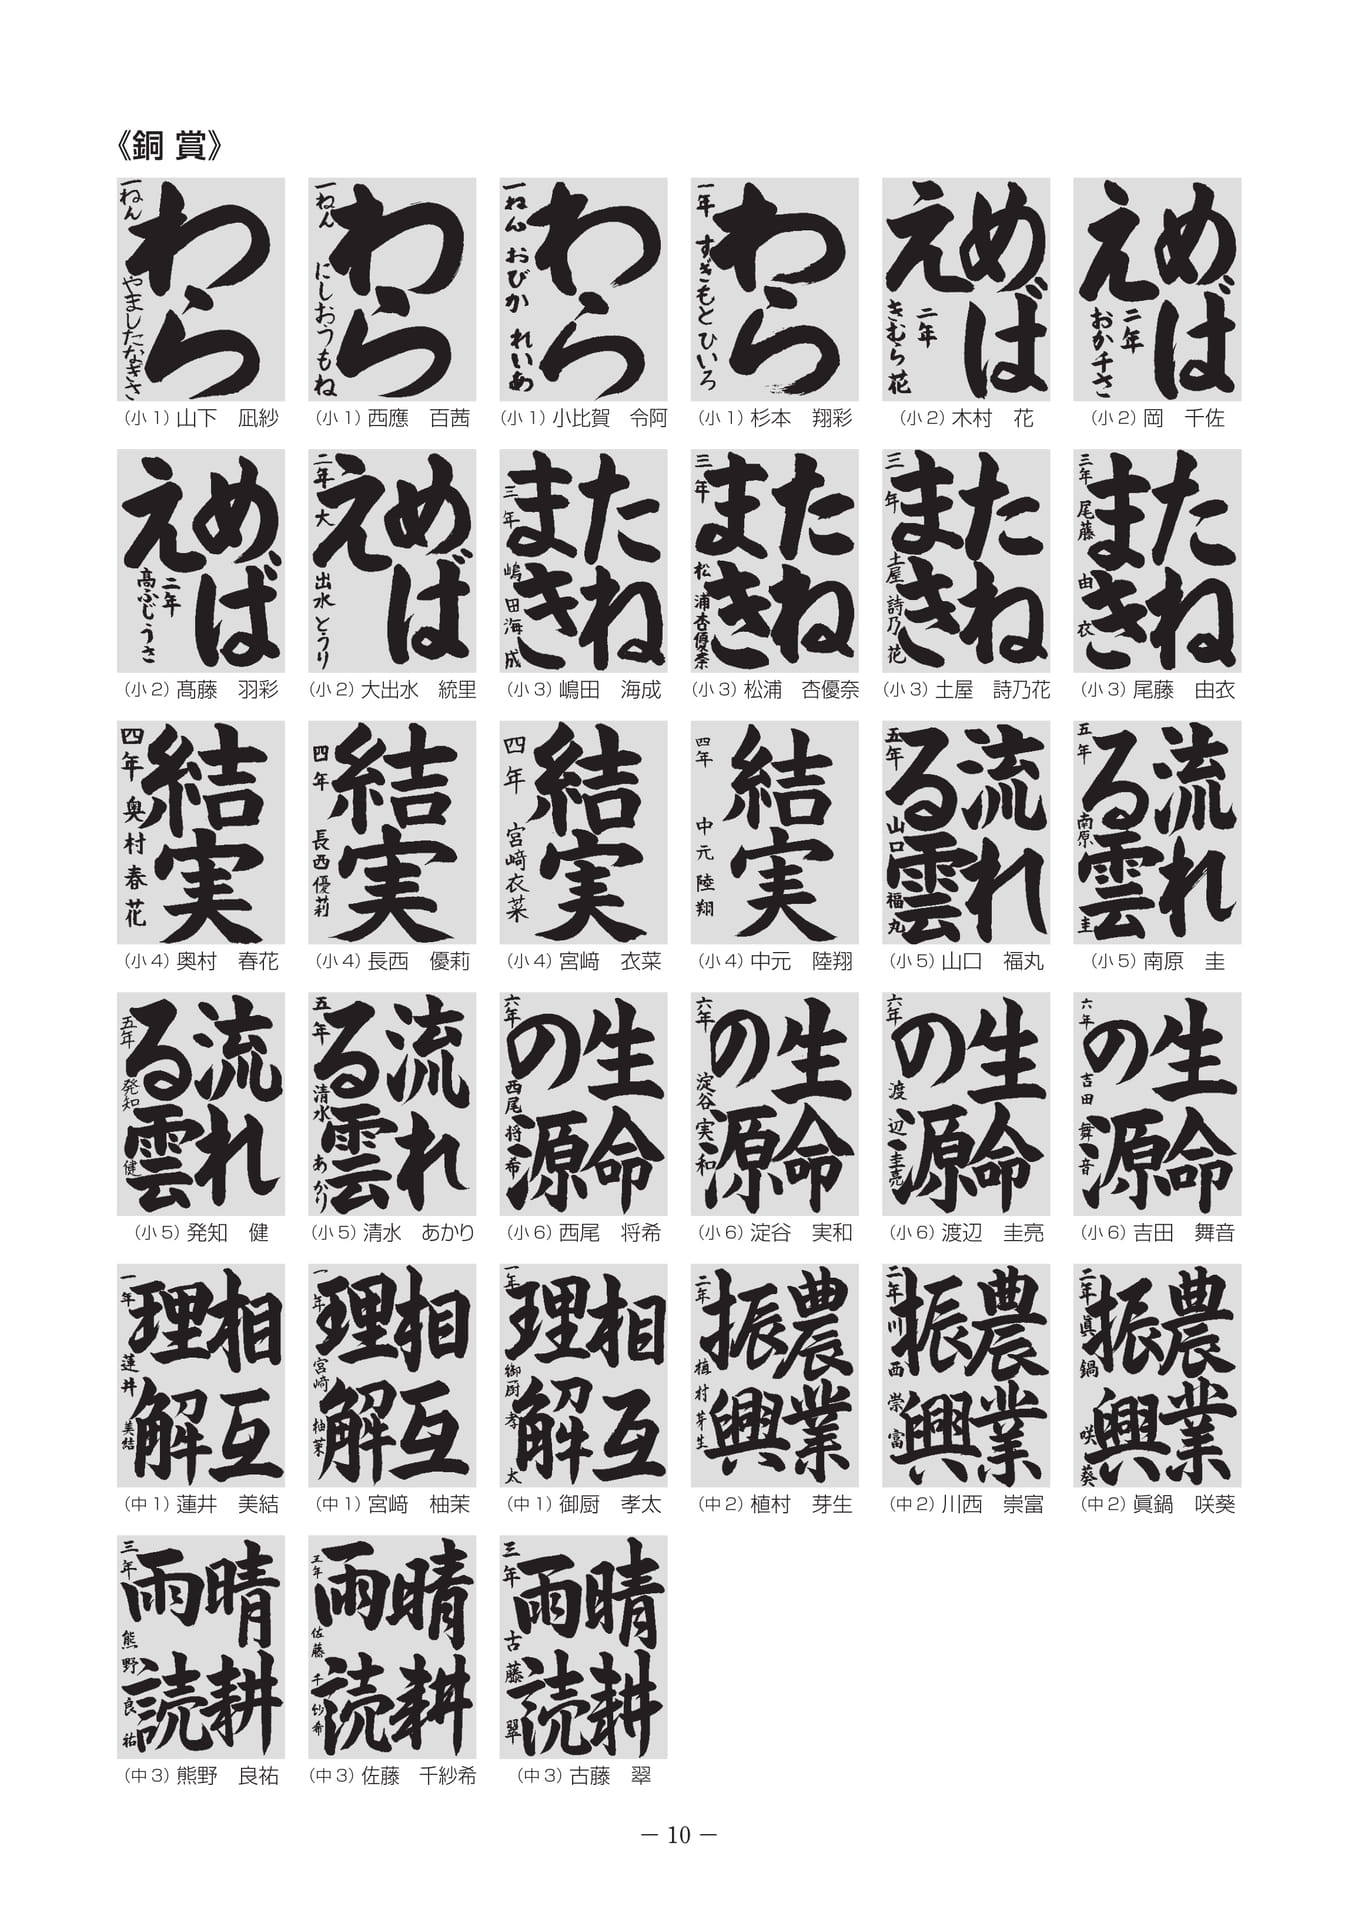 《銅 賞》
一ねん やましたなぎさ
わら
(小1) 山下 凪紗
一ねん にしおうもね
わら
(小1) 西應 百茜
一ねん おびか れいあ
わら
(小1) 小比賀 令阿
一年 すぎもとひいろ
わら
(小1) 杉本 翔彩
めば
え
二年
きむら花
(小2) 木村 花
めば
え
二年
おか千さ
(小2) 岡 千佐
めば
え
二年
高ふじうさ
(小2) 髙藤 羽彩
めば
え
二年 大出水とうり
(小2) 大出水 統里
たね
まき
三年 嶋田海成
(小3) 嶋田 海成
たね
まき
三年 松浦杏優奈
(小3) 松浦 杏優奈
たね
まき
三年 土屋詩乃花
(小3) 土屋 詩乃花
たね
まき
三年 尾藤由衣
(小3) 尾藤 由衣
結実
四年 奥村春花
(小4) 奥村 春花
結実
四年 長西優莉
(小4) 長西 優莉
結実
四年 宮﨑衣菜
(小4) 宮﨑 衣菜
結実
四年 中元陸翔
(小4) 中元 陸翔
流れ
る雲
五年 山口福丸
(小5) 山口 福丸
流れ
る雲
五年 南原圭
(小5) 南原 圭
流れ
る雲
五年 発知健
(小5) 発知 健
流れ
る雲
五年 清水あかり
(小5) 清水 あかり
生命
の源
六年 西尾将希
(小6) 西尾 将希
生命
の源
六年 淀谷実和
(小6) 淀谷 実和
生命
の源
六年 渡辺圭亮
(小6) 渡辺 圭亮
生命
の源
六年 吉田舞音
(小6) 吉田 舞音
相互
理解
一年 蓮井美結
(中1) 蓮井 美結
相互
理解
一年 宮﨑柚茉
(中1) 宮﨑 柚茉
相互
理解
一年 御厨孝太
(中1) 御厨 孝太
農業
振興
二年 植村芽生
(中2) 植村 芽生
農業
振興
二年 川西崇富
(中2) 川西 崇富
農業
振興
二年 眞鍋咲葵
(中2) 眞鍋 咲葵
晴耕
雨読
三年 熊野良祐
(中3) 熊野 良祐
晴耕
雨読
三年 佐藤千紗希
(中3) 佐藤 千紗希
晴耕
雨読
三年 古藤翠
(中3) 古藤 翠
― 10 ―